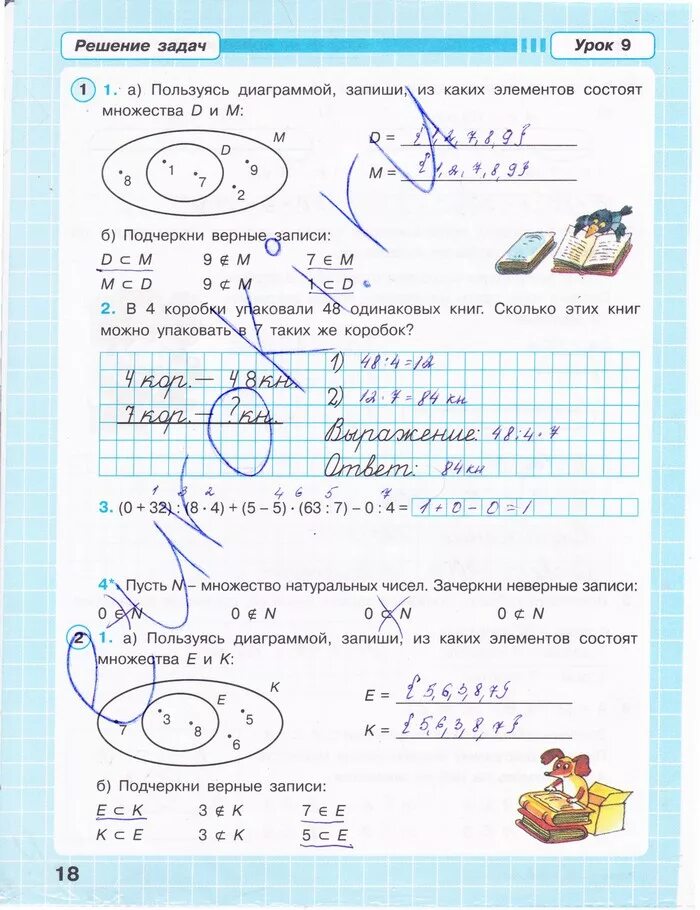 Решение задач
Урок 9
1 1. а) Пользуясь диаграммой, запиши, из каких элементов состоят
множества D и M:
M
D
8 1 7 9 2
D = {1,2,7,8,9}
M = {1,2,7,8,9}
б) Подчеркни верные записи:
D ⊂ M 9 ∉ M 7 ∈ M
M ⊂ D 9 ⊄ M 1 ⊂ D
2. В 4 коробки упаковали 48 одинаковых книг. Сколько этих книг
можно упаковать в 7 таких же коробок?
4 кор. — 48 кн.
7 кор. — ? кн.
1) 48:4=12
2) 12·7=84 кн
Выражение: 48:4·7
Ответ: 84 кн
1 3 2 4 6 5 7
3. (0 + 32) : (8 · 4) + (5 – 5) · (63 : 7) – 0 : 4 = 1+0-0=1
4*. Пусть N – множество натуральных чисел. Зачеркни неверные записи:
0 ∈ N 0 ∉ N 0 ⊂ N 0 ⊄ N
2 1. а) Пользуясь диаграммой, запиши, из каких элементов состоят
множества E и K:
K
E
7 3 8 5 6
E = {5,6,3,8,7}
K = {5,6,3,8,7}
б) Подчеркни верные записи:
E ⊂ K 3 ∉ K 7 ∈ E
K ⊂ E 3 ⊄ K 5 ⊂ E
18